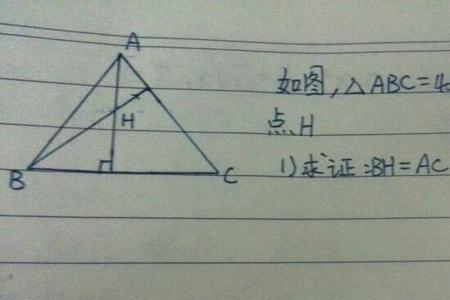 A
H
B
C
如图，△ABC=4
点H
1)求证:BH=AC